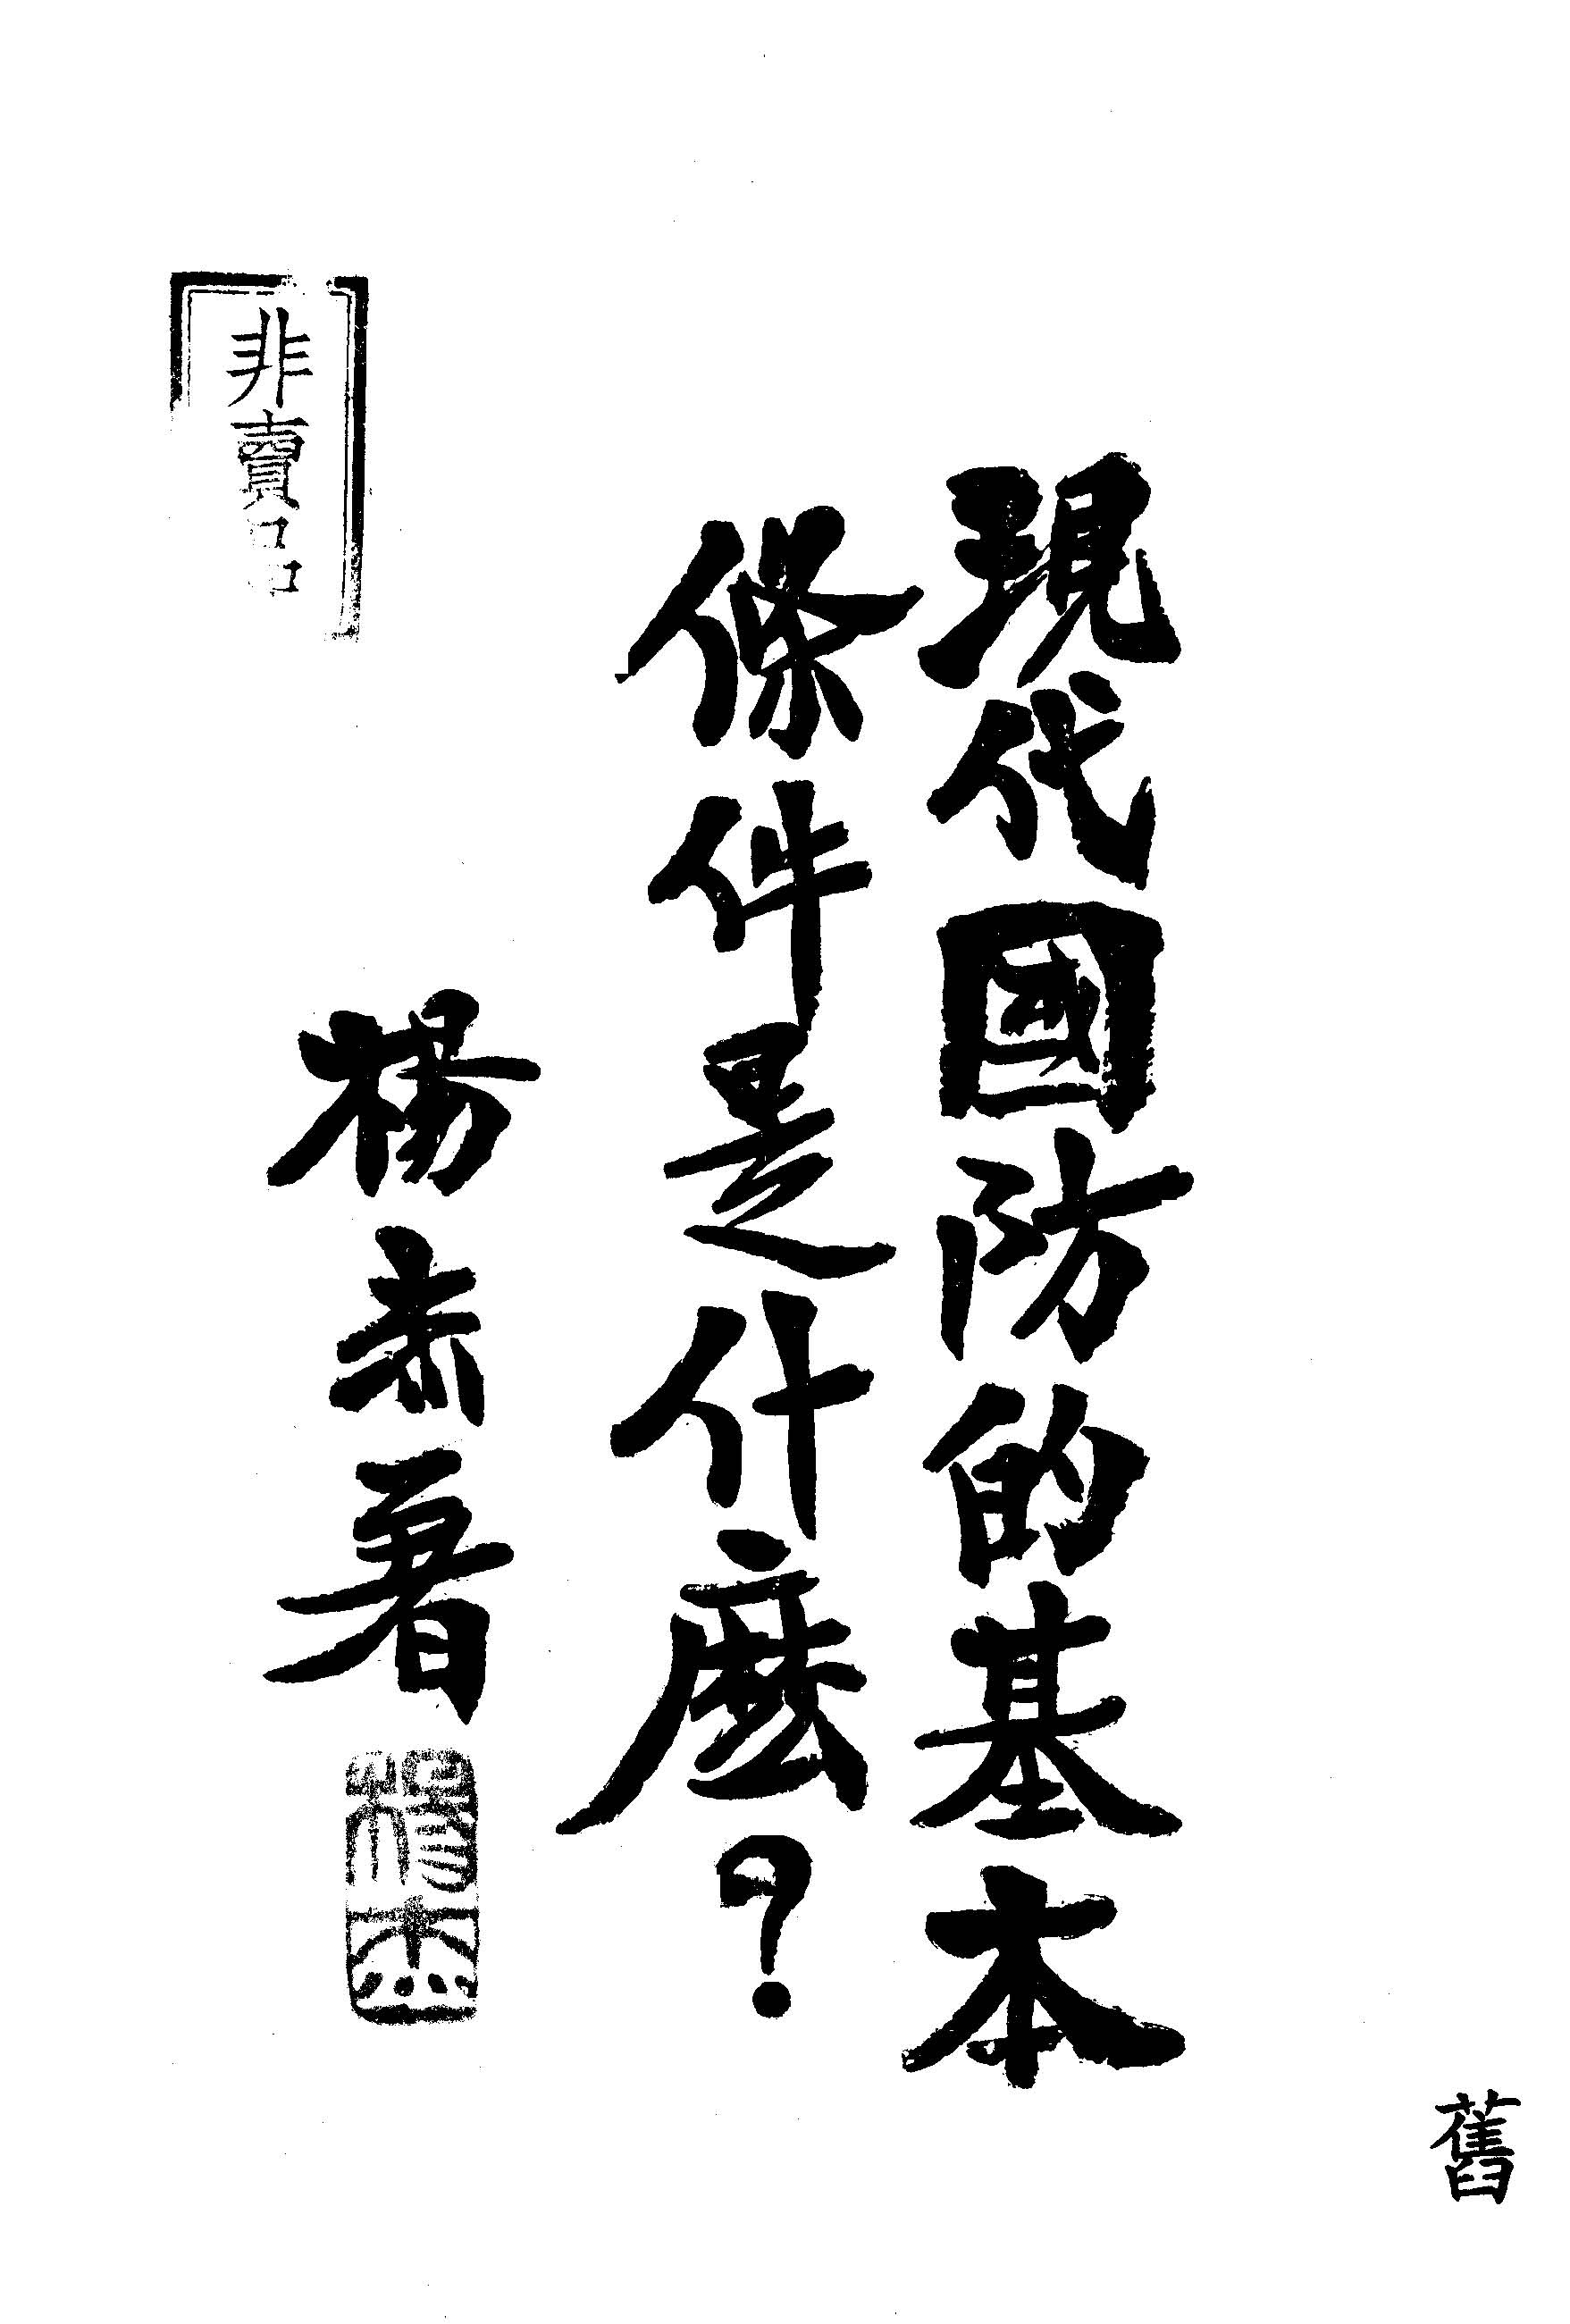 舊
現代國防的基本
條件是什麼？
楊杰著
楊杰
非賣品